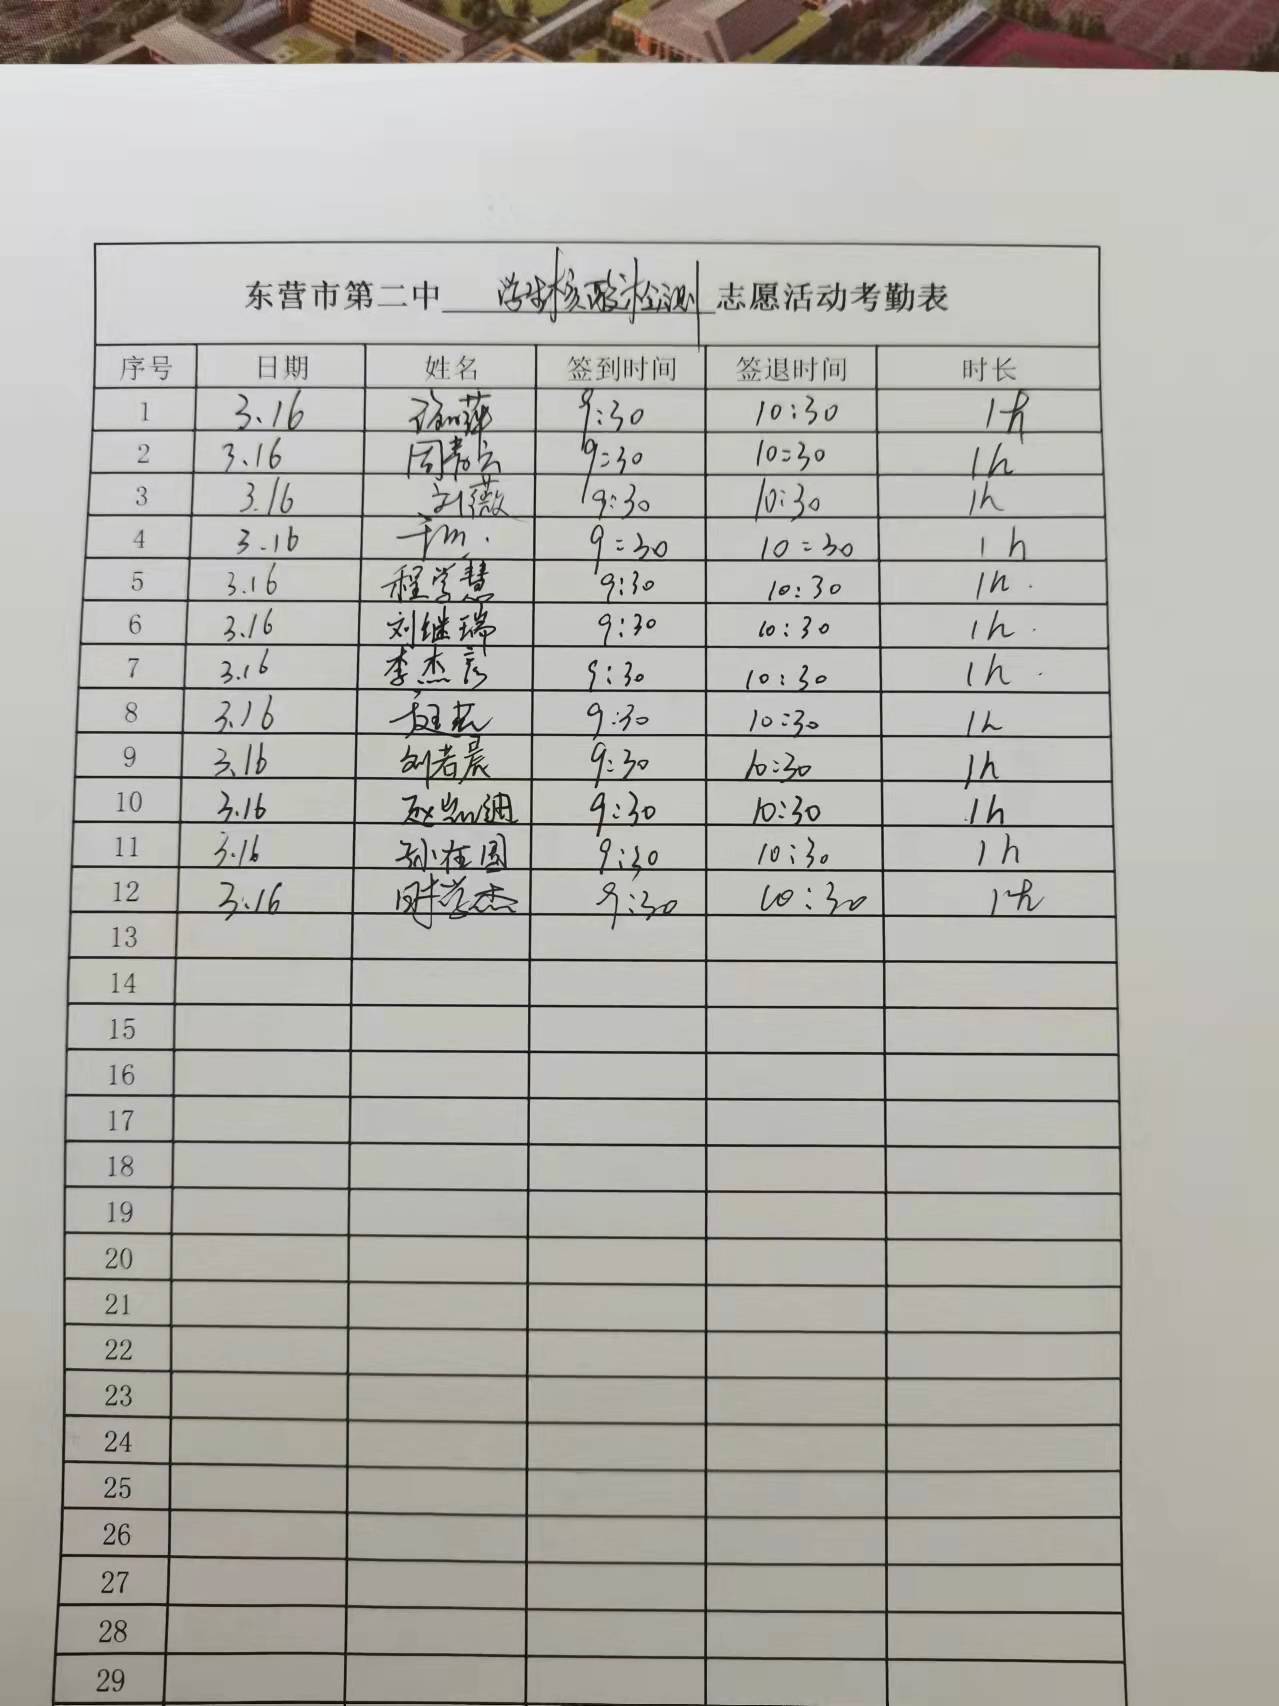 东营市第二中 学生核酸检测 志愿活动考勤表
序号 日期 姓名 签到时间 签退时间 时长
1 3.16 徐萍 9:30 10:30 1h
2 3.16 9:30 10:30 1h
3 3.16 刘薇 9:30 10:30 1h
4 3.16 9:30 10:30 1h
5 3.16 程学慧 9:30 10:30 1h
6 3.16 刘继瑞 9:30 10:30 1h
7 3.16 李杰彦 9:30 10:30 1h
8 3.16 9:30 10:30 1h
9 3.16 刘若晨 9:30 10:30 1h
10 3.16 9:30 10:30 1h
11 3.16 孙在国 9:30 10:30 1h
12 3.16 时学杰 9:30 10:30 1h
13
14
15
16
17
18
19
20
21
22
23
24
25
26
27
28
29